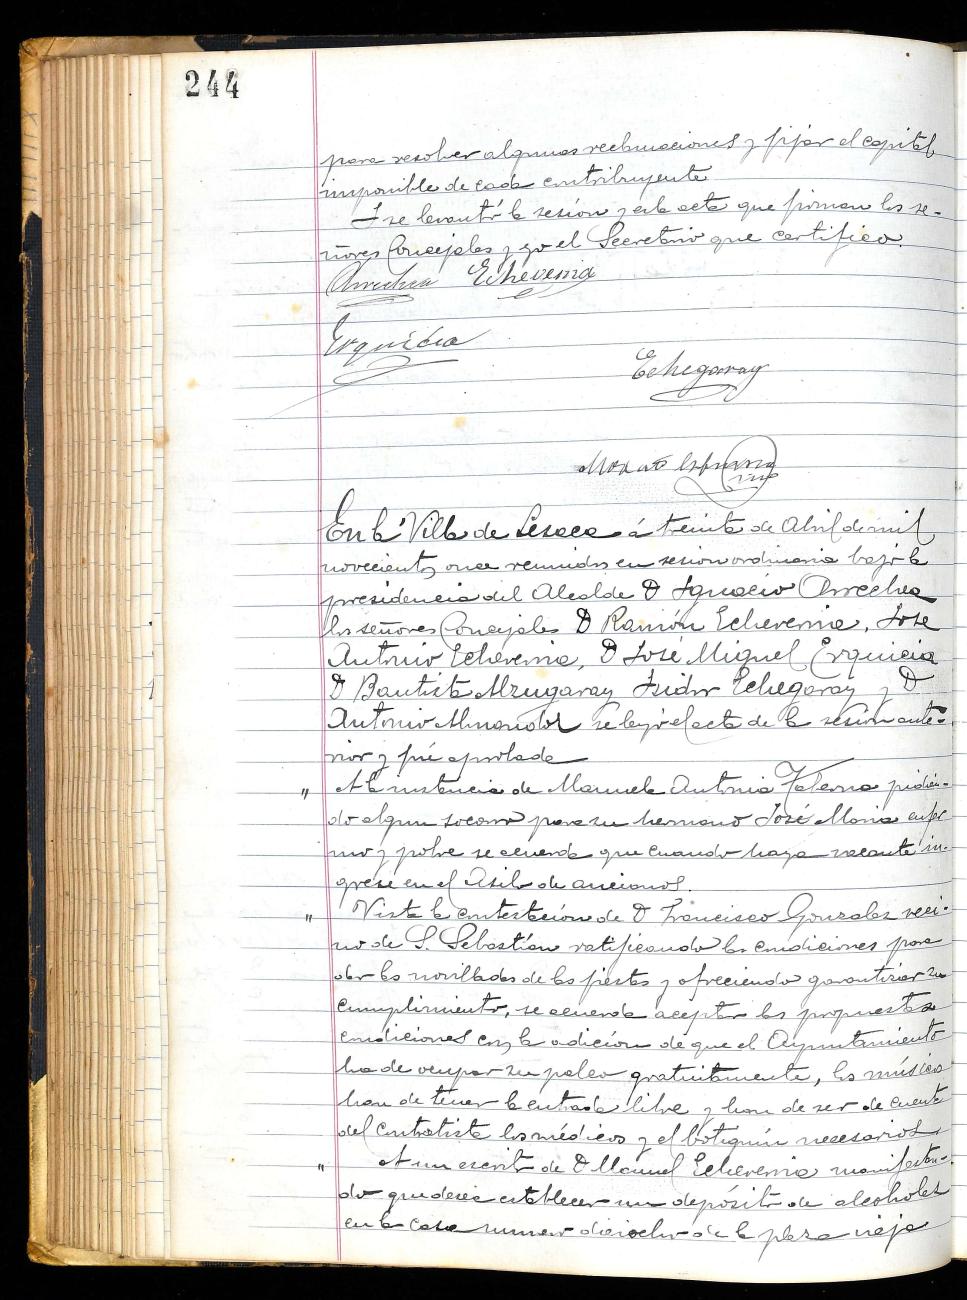 244
para resolver algunas reclamaciones y fijar el capital
imponible de cada contribuyente
Y se levantó la sesión y esta acta que firman los se-
ñores Concejales y yo el Secretario que certifico.
Arrechea Echeverria
Erquicia
Echegaray
En la Villa de Lesaca á treinta de Abril de mil
novecientos once reunidos en sesion ordinaria bajo la
presidencia del Alcalde D Ignacio Arrechea
los señores Concejales D Ramón Echeverria, José
Antonio Echeverria, D José Miguel Erquicia
D Bautista Mzugaray Isidor Echegaray y D
Antonio Almandoz se leyó el acta de la sesión ante-
rior y fué aprobada
" A la instancia de Manuela Antonia Taberna pidien-
do algun socorro para su hermano José Maria enfer
mo y pobre se acuerda que cuando haya vacante in-
grese en el Asilo de ancianos.
" Vista la contestación de D Francisco Gonzalez veci-
no de S. Sebastían ratificando las condiciones para
dar las novilladas de las fiestas y ofreciendo garantizar su
cumplimiento, se acuerda aceptar las propuestas
condiciones con la adición de que el Ayuntamiento
ha de ocupar su palco gratuitamente, los músicos
han de tener la entrada libre y han de ser de cuenta
del contratista los médicos y el botiquín necesarios
" A un escrito de D Manuel Echeverria manifestan-
do que desea establecer un depósito de alcoholes
en la casa numero dieciocho de la plaza vieja